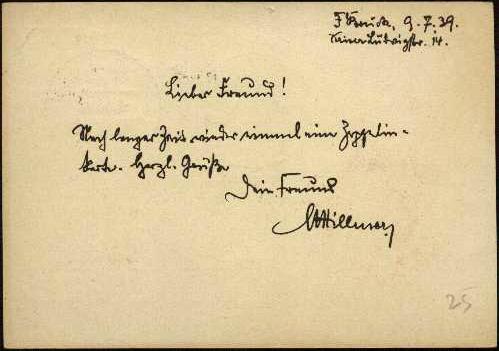 9.7.39.
Ludwigstr. 14.
Lieber Freund!
Nach langer Zeit wieder einmal eine Zeppelin-
karte. Herzl. Grüße
Dein Freund
25